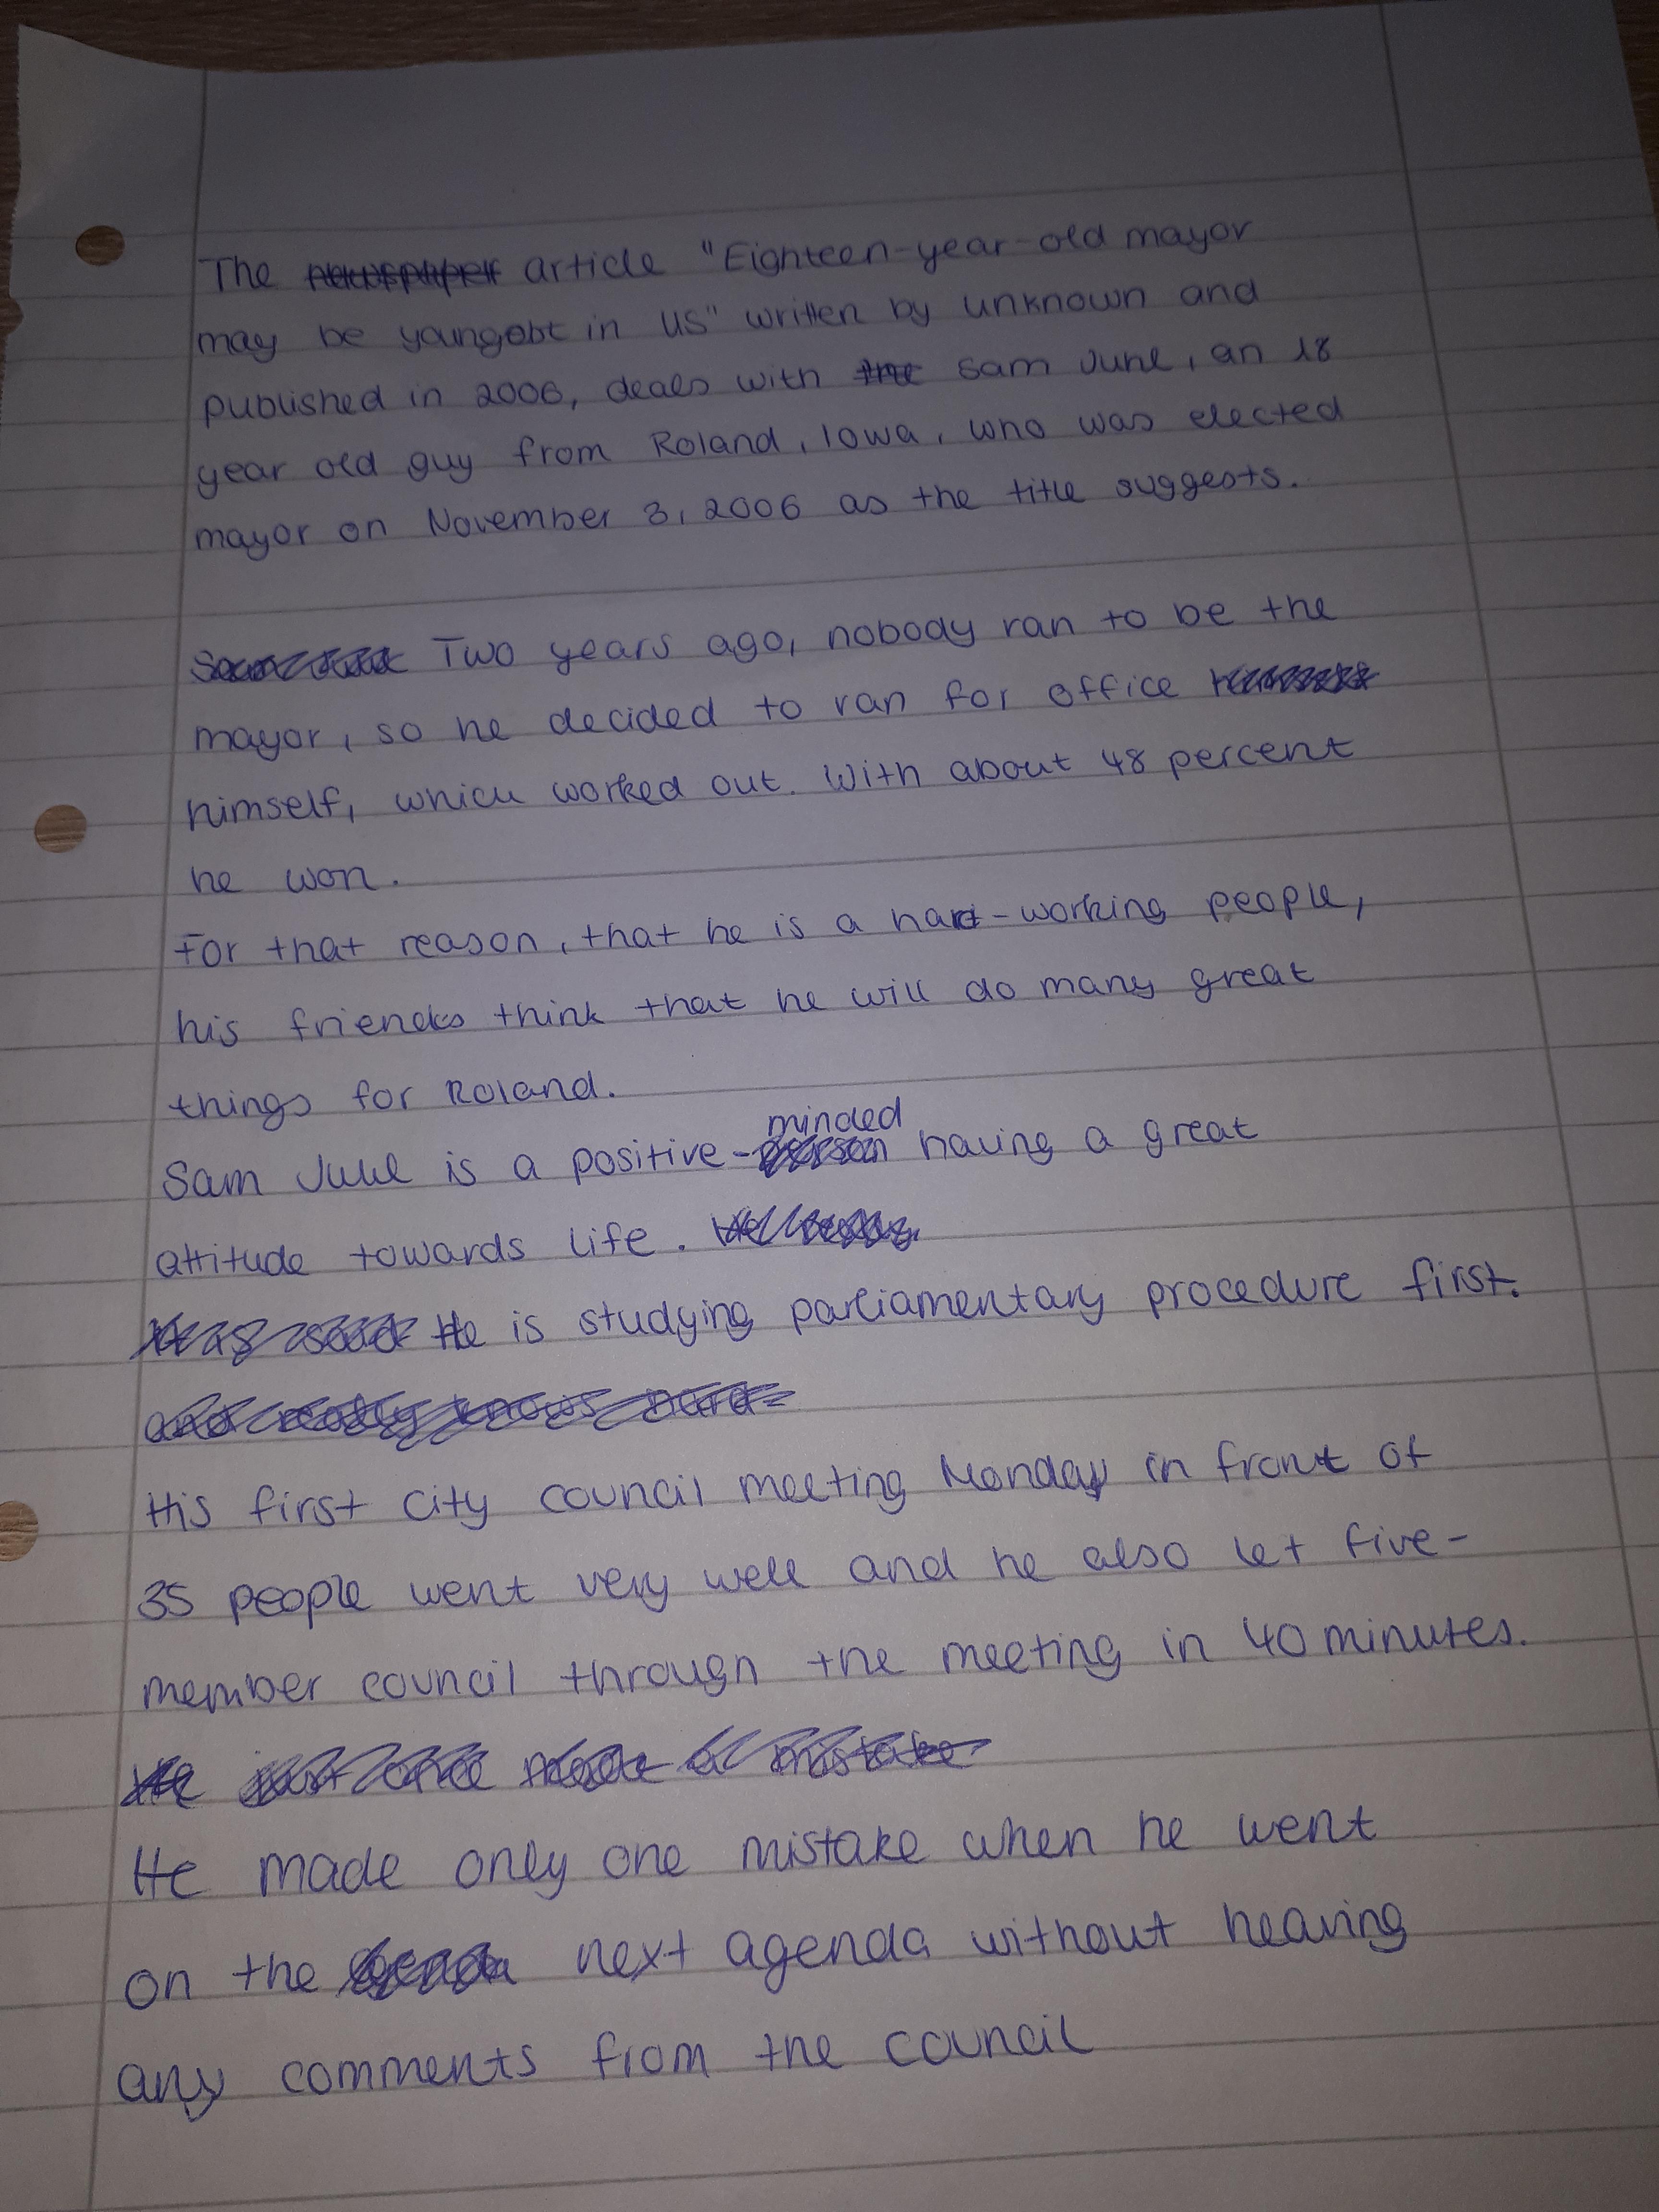 The article "Eighteen-year-old mayor
may be youngest in US" written by unknown and
published in 2006, deals with Sam June, an 18
year old guy from Roland, Iowa, who was elected
mayor on November 3, 2006 as the title suggests.
Two years ago, nobody ran to be the
mayor, so he decided to ran for office
himself, which worked out. With about 48 percent
he won.
For that reason, that he is a hard-working people,
his friends think that he will do many great
things for Roland.
minded
Sam Juhl is a positive- having a great
attitude towards life.
He is studying parliamentary procedure first.
His first city council meeting Monday in front of
35 people went very well and he also let five-
member council through the meeting in 40 minutes.
He made only one mistake when he went
on the next agenda without hearing
any comments from the council